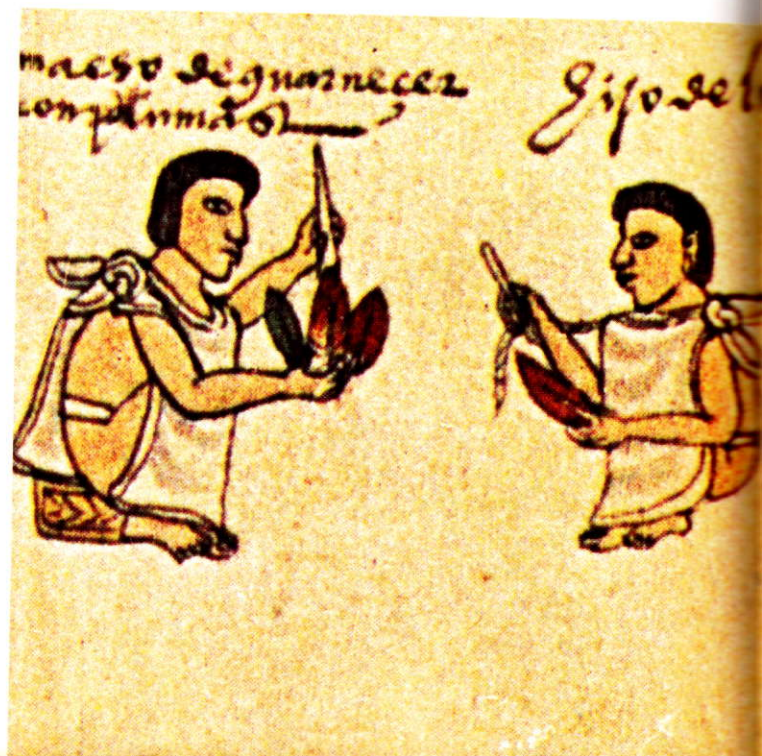 maeso de guarnecer
con plumas
hijo de l